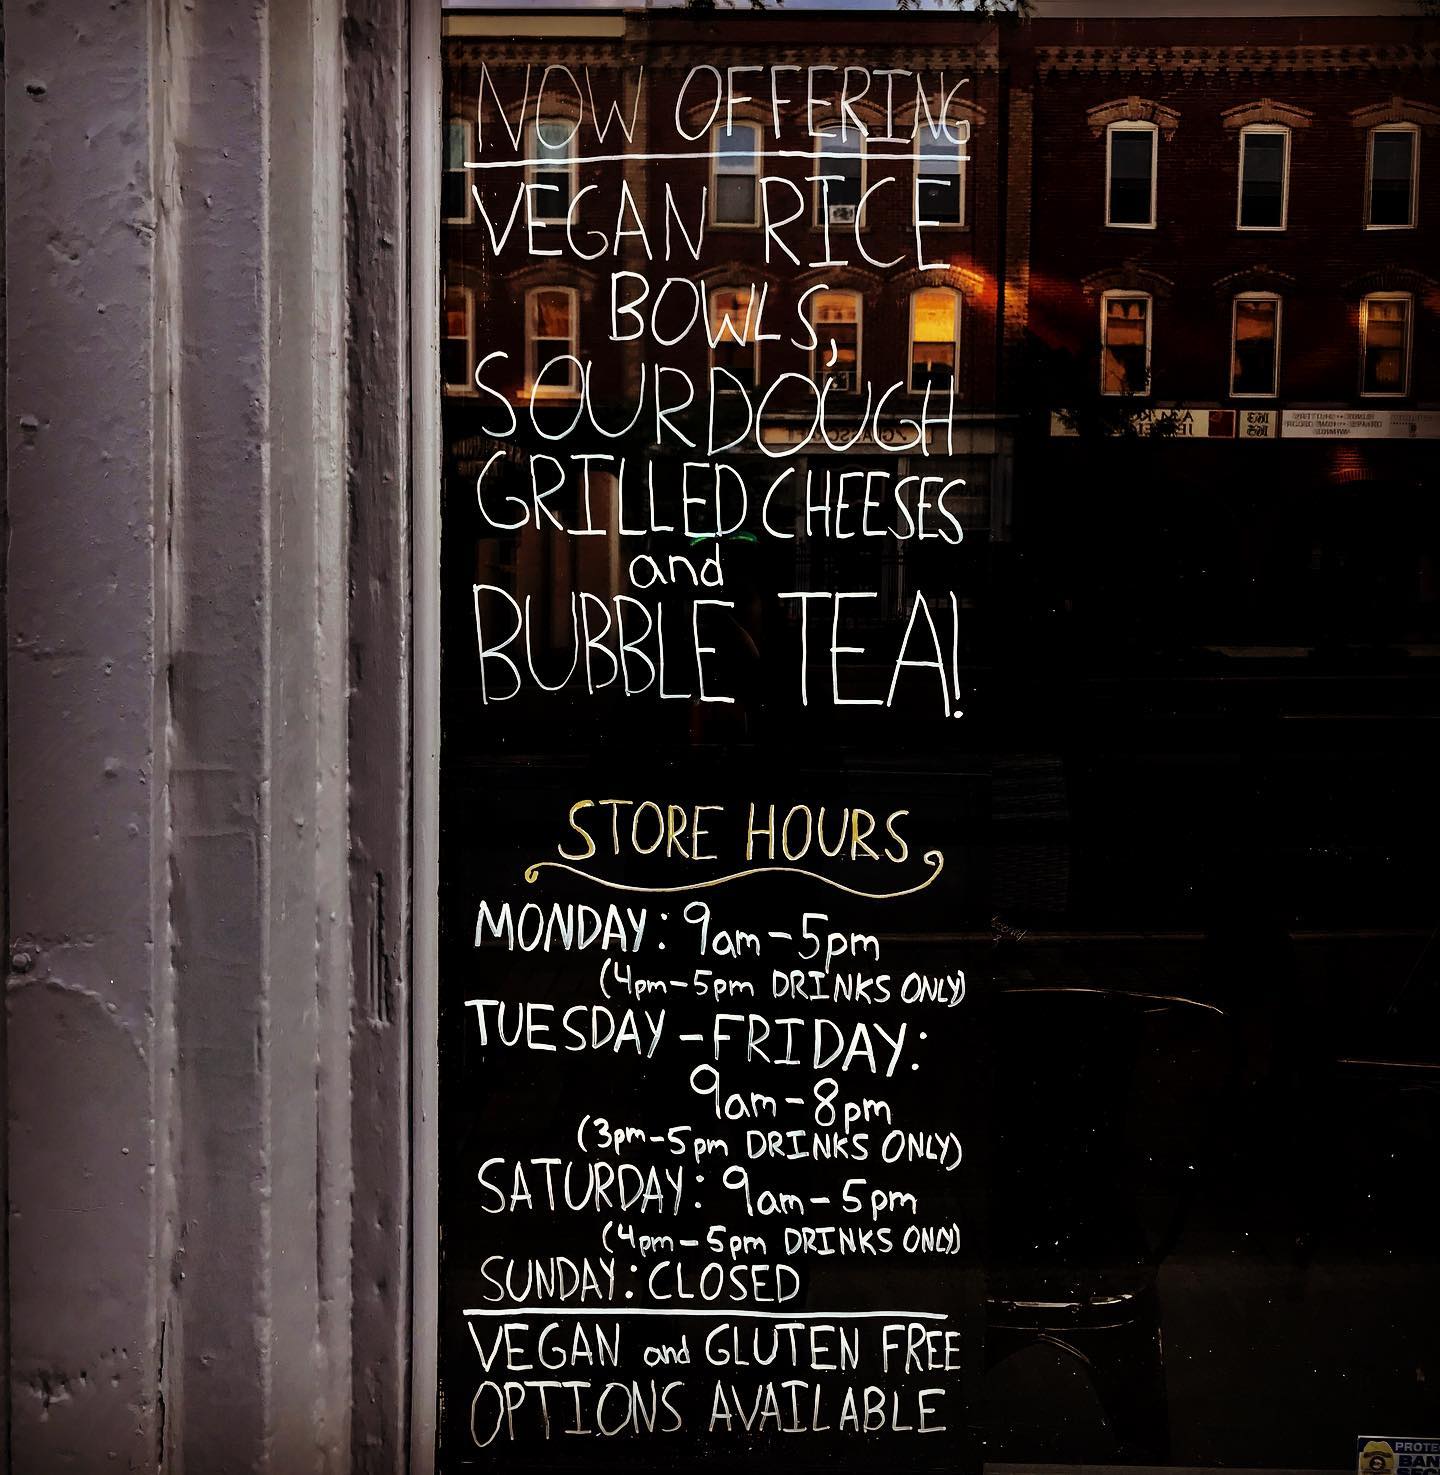 NOW OFFERING
VEGAN RICE
BOWLS,
SOURDOUGH
GRILLED CHEESES
and
BUBBLE TEA!
STORE HOURS
MONDAY: 9am-5pm
(4pm-5pm DRINKS ONLY)
TUESDAY-FRIDAY:
9am-8pm
(3pm-5pm DRINKS ONLY)
SATURDAY: 9am-5pm
(4pm-5pm DRINKS ONLY)
SUNDAY: CLOSED
VEGAN and GLUTEN FREE
OPTIONS AVAILABLE